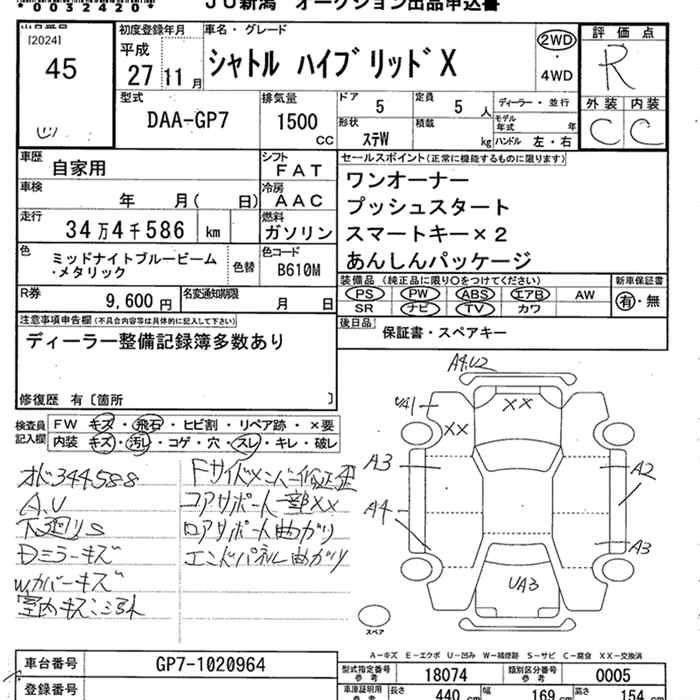 *0032420*
JU新潟 オークション出品申込書
[2024]
45
初度登録年月
平成
27 11 月
車名・グレード
シャトル ハイブリッドX
2WD
・
4WD
評価点
R
外装 内装
C C
型式
DAA-GP7
排気量
1500
CC
ドア 5
定員 5 人
形状 ステW
積載 kg
ディーラー・並行
モデル年式 年
ハンドル 左・右
車歴
自家用
シフト
FAT
車検
年 月( 日)
冷房
AAC
走行
34万4千586 km
燃料
ガソリン
色
ミッドナイトブルービーム
・メタリック
色替
色コード
B610M
R券
9,600 円
名変通知期限
月 日
セールスポイント(正常に機能するものに限ります)
ワンオーナー
プッシュスタート
スマートキー×2
あんしんパッケージ
装備品 (純正品に限り○をつけてください)
PS PW ABS エアB AW
SR ナビ TV カワ
新車保証書
有・無
後日品
保証書・スペアキー
注意事項申告欄(不具合内容等は具体的に記入して下さい)
ディーラー整備記録簿多数あり
修復歴 有〔箇所 〕
検査員
記入欄
FW キズ・飛石・ヒビ割・リペア跡・×要
内装 キズ・汚レ・コゲ・穴・スレ・キレ・破レ
オド344588
A.U
下廻りS
Dミラーキズ
Wカバーキズ
Fサイドメンバー修正歪
コアサポート一部XX
ロアサポート曲がり
エンドパネル曲がり
A4.U2
UA1
XX
XX
A3
A2
A4
A3
UA3
スペア
A-キズ E-エクボ U-凹み W-補修跡 S-サビ C-腐食 XX-交換済
車台番号
GP7-1020964
登録番号
型式指定番号
参考
18074
類別区分番号
参考
0005
車庫証明用
参考
長さ
440 cm
幅
169 cm
高さ
154 cm